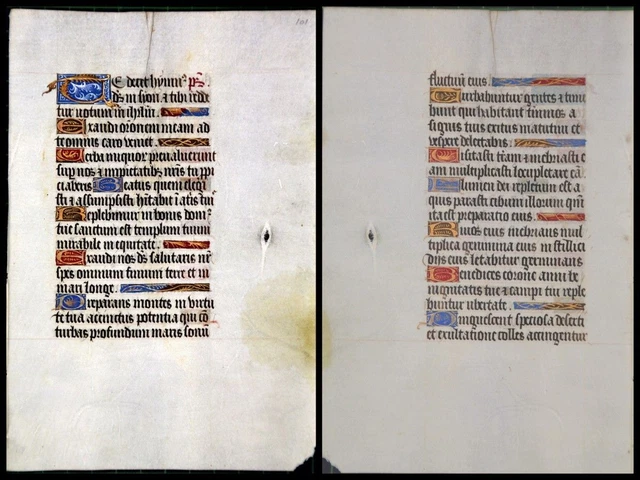 Te decet hymn⁹ ps̄.
ds̄ in sion ⁊ tibi redde
tur uotum in ihrlm̄.
Exaudi or̄onem meam ad
te omnis caro ueniet.
Verba iniquor̄ preualuerunt
sup nos ⁊ impietatib⁹ nr̄is tu ppi
ciaberis Beatus quem elegi
sti ⁊ assumpsisti hītabit ī atriis tuis
Replebimur in bonis dom⁹
tue sanctum est templum tuum
mirabile in equitate.
Exaudi nos ds̄ salutaris nr̄
spes omnium finium terre et in
mari longe.
Preparans montes in uirtu
te tua accinctus potentia qui cō
turbas profundum maris sonū
fluctuū eius.
Turbabuntur gentes ⁊ time
bunt qui habitant termīos a
signis tuis exitus matutini et
uespere delectabis.
Uisitasti tr̄am ⁊ inebriasti e
am multiplicasti locupletare eā
Flumen dei repletum est a
quis parasti cibum illorum qm̄
ita est preparatio eius.
Riuos eius inebrians mul
tiplica genimina eius in stillici
diis eius letabitur germinans
Benedices corone anni be
nignitatis tue ⁊ campi tui reple
buntur ubertate.
Pinguescent speciosa deserti
et exultatione colles accingentur